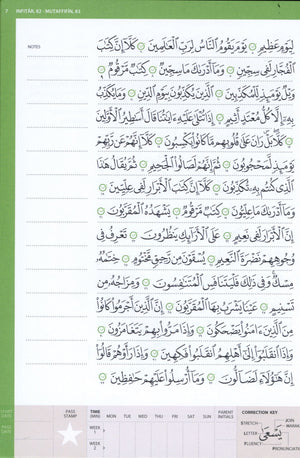 7 INFITĀR, 82 - MUTAFFIFĪN, 83
NOTES
لِيَوْمٍ عَظِيمٍ يَوْمَ يَقُومُ ٱلنَّاسُ لِرَبِّ ٱلْعَٰلَمِينَ كَلَّآ إِنَّ كِتَٰبَ
ٱلْفُجَّارِ لَفِى سِجِّينٍ وَمَآ أَدْرَىٰكَ مَا سِجِّينٌ كِتَٰبٌ مَّرْقُومٌ
وَيْلٌ يَوْمَئِذٍ لِّلْمُكَذِّبِينَ ٱلَّذِينَ يُكَذِّبُونَ بِيَوْمِ ٱلدِّينِ وَمَا يُكَذِّبُ
بِهِۦٓ إِلَّا كُلُّ مُعْتَدٍ أَثِيمٍ إِذَا تُتْلَىٰ عَلَيْهِ ءَايَٰتُنَا قَالَ أَسَٰطِيرُ ٱلْأَوَّلِينَ
كَلَّا بَلْ رَانَ عَلَىٰ قُلُوبِهِم مَّا كَانُوا۟ يَكْسِبُونَ كَلَّآ إِنَّهُمْ عَن رَّبِّهِمْ
يَوْمَئِذٍ لَّمَحْجُوبُونَ ثُمَّ إِنَّهُمْ لَصَالُوا۟ ٱلْجَحِيمِ ثُمَّ يُقَالُ هَٰذَا
ٱلَّذِى كُنتُم بِهِۦ تُكَذِّبُونَ كَلَّآ إِنَّ كِتَٰبَ ٱلْأَبْرَارِ لَفِى عِلِّيِّينَ
وَمَآ أَدْرَىٰكَ مَا عِلِّيُّونَ كِتَٰبٌ مَّرْقُومٌ يَشْهَدُهُ ٱلْمُقَرَّبُونَ
إِنَّ ٱلْأَبْرَارَ لَفِى نَعِيمٍ عَلَى ٱلْأَرَآئِكِ يَنظُرُونَ تَعْرِفُ فِى
وُجُوهِهِمْ نَضْرَةَ ٱلنَّعِيمِ يُسْقَوْنَ مِن رَّحِيقٍ مَّخْتُومٍ خِتَٰمُهُۥ
مِسْكٌ وَفِى ذَٰلِكَ فَلْيَتَنَافَسِ ٱلْمُتَنَٰفِسُونَ وَمِزَاجُهُۥ مِن
تَسْنِيمٍ عَيْنًا يَشْرَبُ بِهَا ٱلْمُقَرَّبُونَ إِنَّ ٱلَّذِينَ أَجْرَمُوا۟ كَانُوا۟
مِنَ ٱلَّذِينَ ءَامَنُوا۟ يَضْحَكُونَ وَإِذَا مَرُّوا۟ بِهِمْ يَتَغَامَزُونَ
وَإِذَا ٱنقَلَبُوٓا۟ إِلَىٰٓ أَهْلِهِمُ ٱنقَلَبُوا۟ فَكِهِينَ وَإِذَا رَأَوْهُمْ قَالُوٓا۟
إِنَّ هَٰٓؤُلَآءِ لَضَآلُّونَ وَمَآ أُرْسِلُوا۟ عَلَيْهِمْ حَٰفِظِينَ
START DATE PASS STAMP TIME (MIN) MON TUE WED THU FRI SAT SUN PARENT INITIALS CORRECTION KEY
PASS DATE WEEK 1 STRETCH JOIN
WEEK 2 LETTER يَسْعَىٰ
FLUENCY PRONUNCIATION